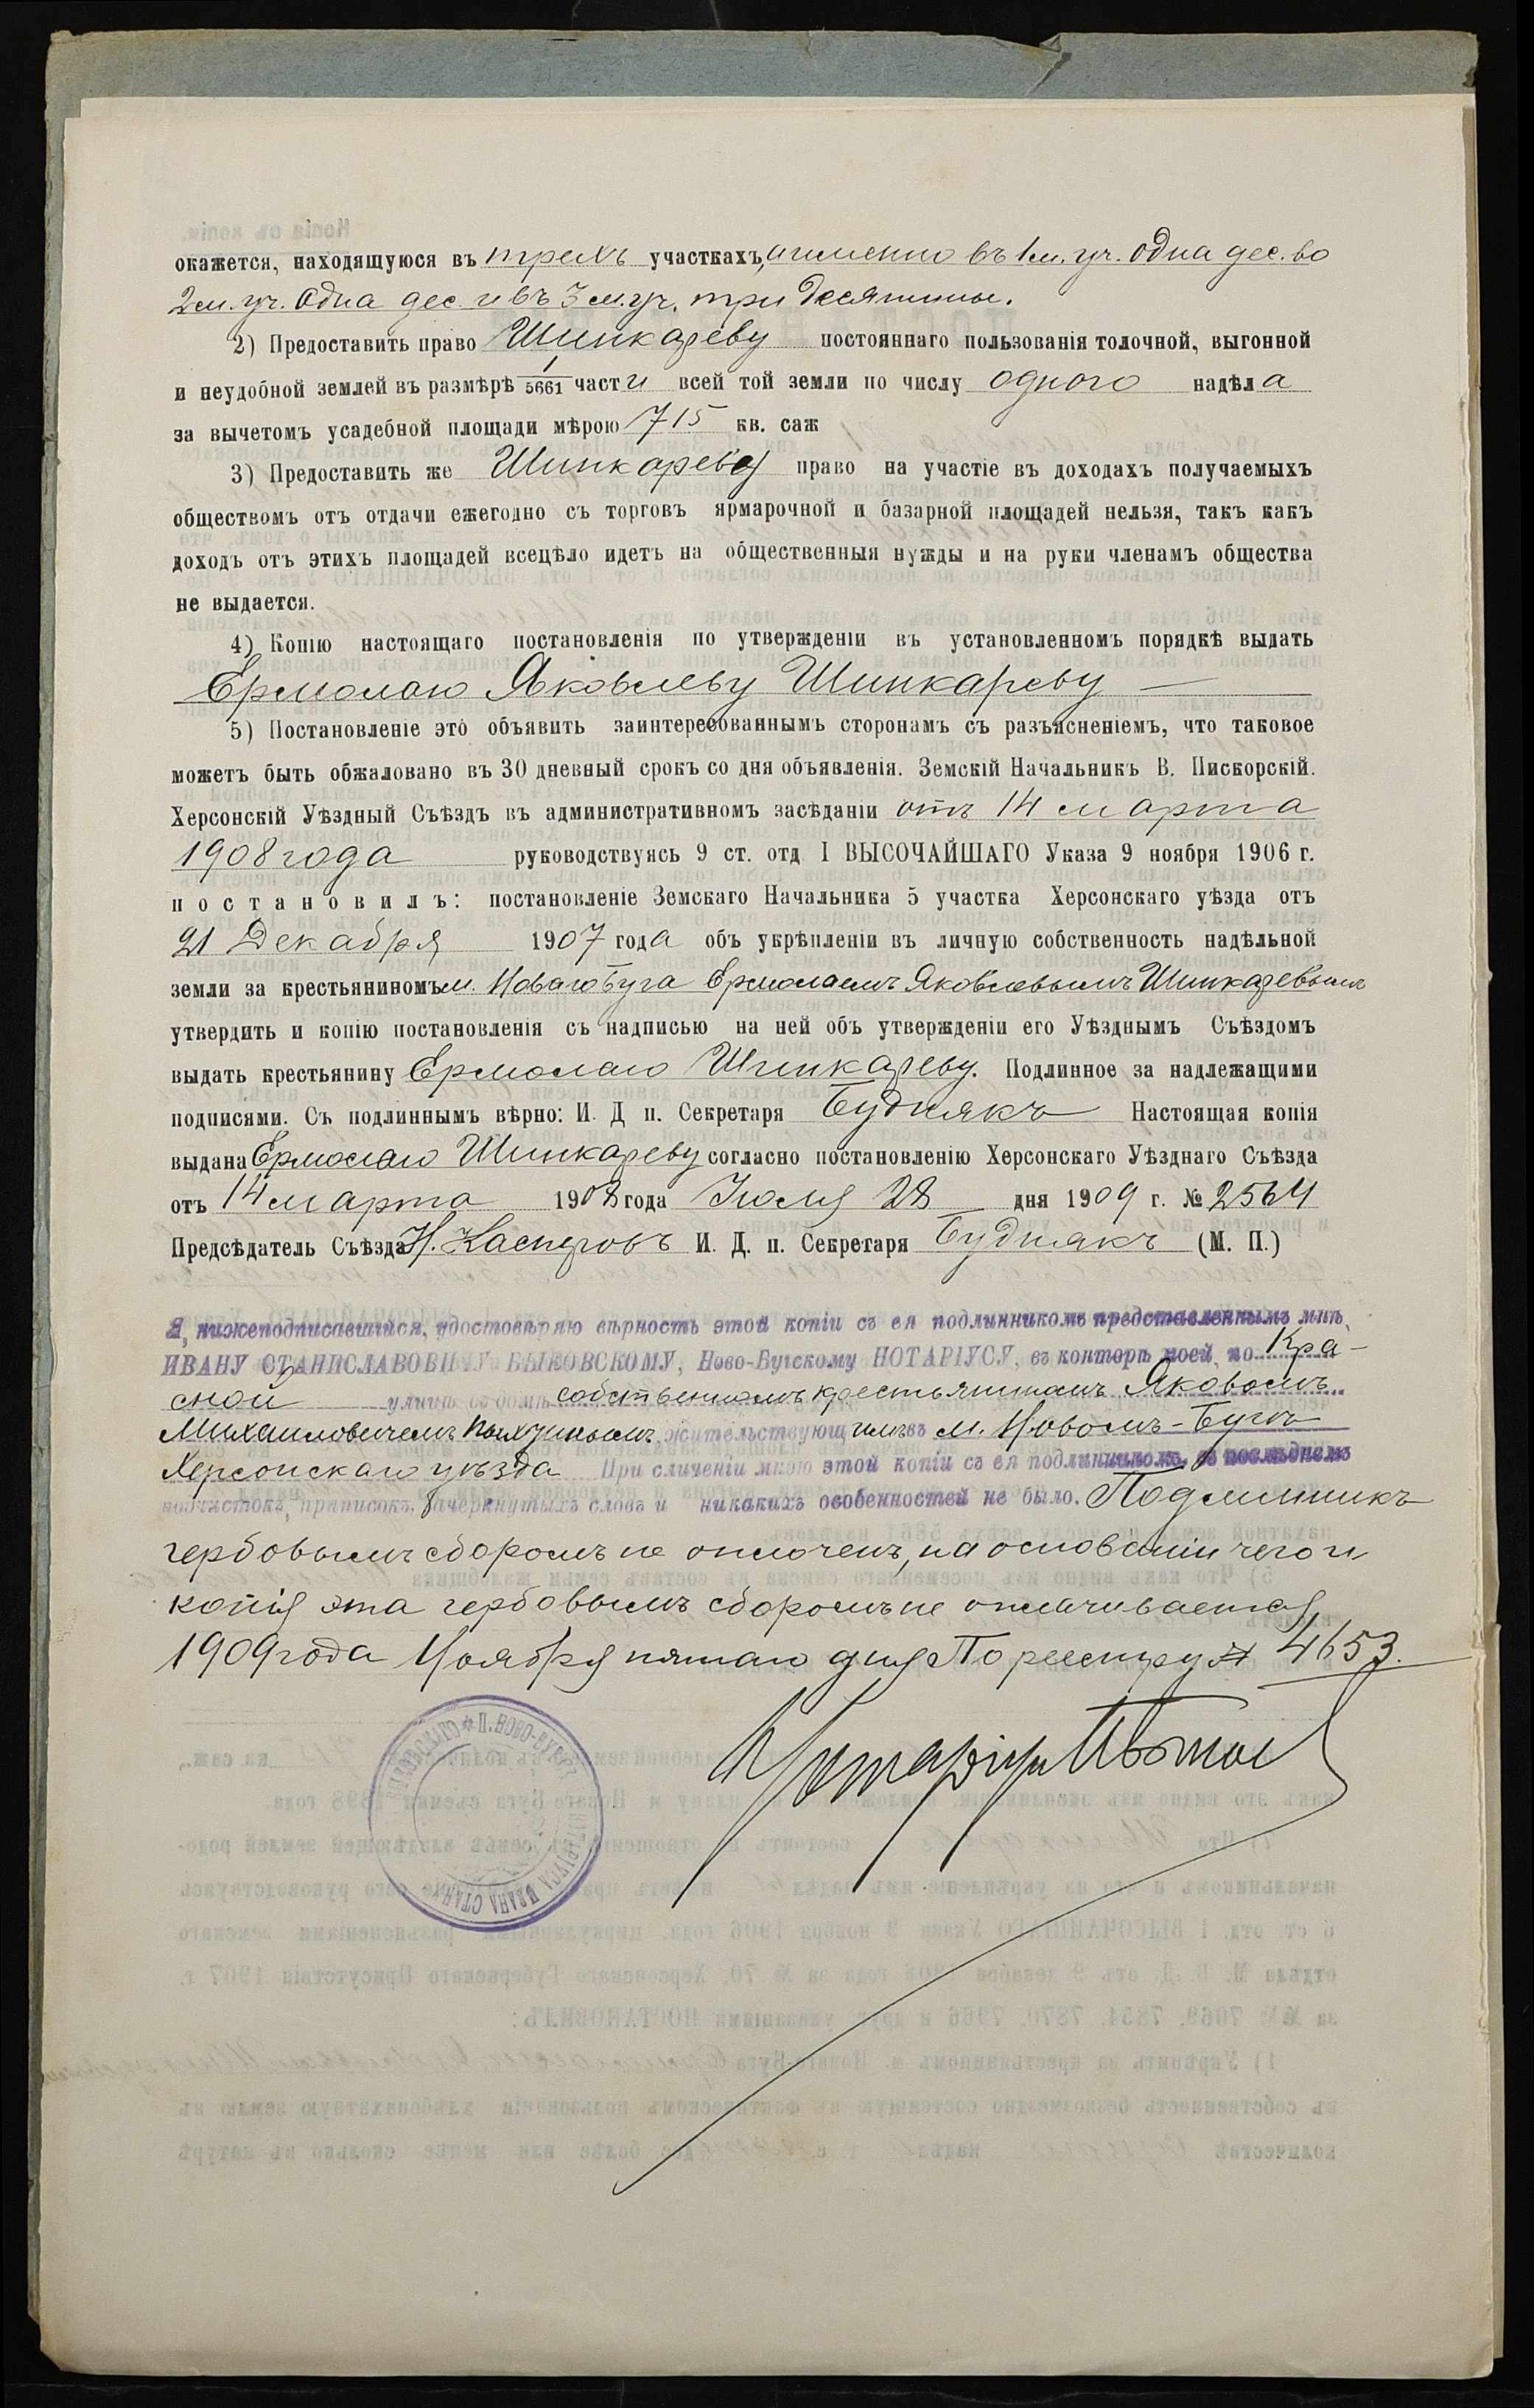 окажется, находящуюся въ трехъ участкахъ, а именно въ 1м. уч. одна дес. во
2м. уч. одна дес. и въ 3 м. уч. три десятины.
2) Предоставить право Шинкареву постояннаго пользованія толочной, выгонной
и неудобной землей въ размѣрѣ 1/5661 части всей той земли по числу одного надѣла
за вычетомъ усадебной площади мѣрою 715 кв. саж
3) Предоставить же Шинкареву право на участіе въ доходахъ получаемыхъ
обществомъ отъ отдачи ежегодно съ торговъ ярмарочной и базарной площадей нельзя, такъ какъ
доходъ отъ этихъ площадей всецѣло идетъ на общественныя нужды и на руки членамъ общества
не выдается.
4) Копію настоящаго постановленія по утвержденіи въ установленномъ порядкѣ выдать
Ермолаю Яковлеву Шинкареву —
5) Постановленіе это объявить заинтересованнымъ сторонамъ съ разъясненіемъ, что таковое
можетъ быть обжаловано въ 30 дневный срокъ со дня объявленія. Земскій Начальникъ В. Пискорскій.
Херсонскій Уѣздный Съѣздъ въ административномъ засѣданіи отъ 14 марта
1908 года руководствуясь 9 ст. отд I ВЫСОЧАЙШАГО Указа 9 ноября 1906 г.
постановилъ: постановленіе Земскаго Начальника 5 участка Херсонскаго уѣзда отъ
21 Декабря 1907 года объ укрѣпленіи въ личную собственность надѣльной
земли за крестьяниномъ м. Новаго Буга Ермолаемъ Яковлевымъ Шинкаревымъ
утвердить и копію постановленія съ надписью на ней объ утвержденіи его Уѣзднымъ Съѣздомъ
выдать крестьянину Ермолаю Шинкареву. Подлинное за надлежащими
подписями. Съ подлиннымъ вѣрно: И. Д п. Секретаря Буднякъ Настоящая копія
выдана Ермолаю Шинкареву согласно постановленію Херсонскаго Уѣзднаго Съѣзда
отъ 14 марта 1908 года Іюля 28 дня 1909 г. № 2564
Предсѣдатель Съѣзда Н. Касперовъ И. Д. п. Секретаря Буднякъ (М. П.)
Я, нижеподписавшійся, удостовѣряю вѣрность этой копіи съ ея подлинникомъ представленнымъ мнѣ,
ИВАНУ СТАНИСЛАВОВИЧУ БЫКОВСКОМУ, Ново-Бугскому НОТАРІУСУ, въ конторѣ моей, по Кра-
сной улицѣ въ домѣ собственномъ крестьяниномъ Яковомъ
Михаиловичемъ жительствующимъ въ м. Новомъ-Бугѣ
Херсонскаго уѣзда При сличеніи мною этой копіи съ ея подлинникомъ, въ послѣднемъ
подчистокъ, приписокъ, зачеркнутыхъ словъ и никакихъ особенностей не было. Подлинникъ
гербовымъ сборомъ не оплоченъ, на основаніи чего и
копія эта гербовымъ сборомъ не оплачивается
1909 года Ноября пятаго дня По реестру № 4653.
Нотаріусъ